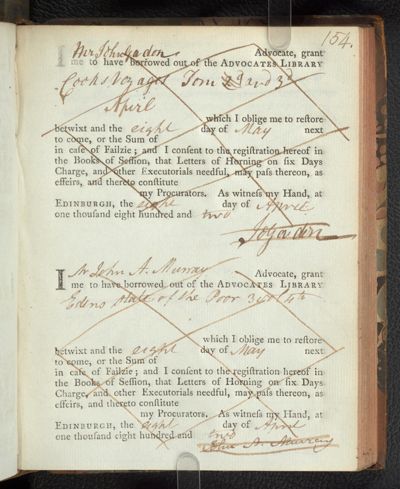 154.
I Mr John Gordon Advocate, grant
me to have borrowed out of the ADVOCATES LIBRARY
Cooks Voyages Tom 2d and 3d
April
which I oblige me to reſtore
betwixt and the eight day of May next
to come, or the Sum of
in caſe of Failzie; and I conſent to the regiſtration hereof in
the Books of Seſſion, that Letters of Horning on ſix Days
Charge, and other Executorials needful, may paſs thereon, as
effeirs, and thereto conſtitute
my Procurators. As witneſs my Hand, at
EDINBURGH, the eight day of April
one thouſand eight hundred and two
Jo Gordon
I Mr John A. Murray Advocate, grant
me to have borrowed out of the ADVOCATES LIBRARY
Edens state of the Poor 3 vol 4to
which I oblige me to reſtore
betwixt and the eight day of May next
to come, or the Sum of
in caſe of Failzie; and I conſent to the regiſtration hereof in
the Books of Seſſion, that Letters of Horning on ſix Days
Charge, and other Executorials needful, may paſs thereon, as
effeirs, and thereto conſtitute
my Procurators. As witneſs my Hand, at
EDINBURGH, the eight day of April
one thouſand eight hundred and two
John A. Murray